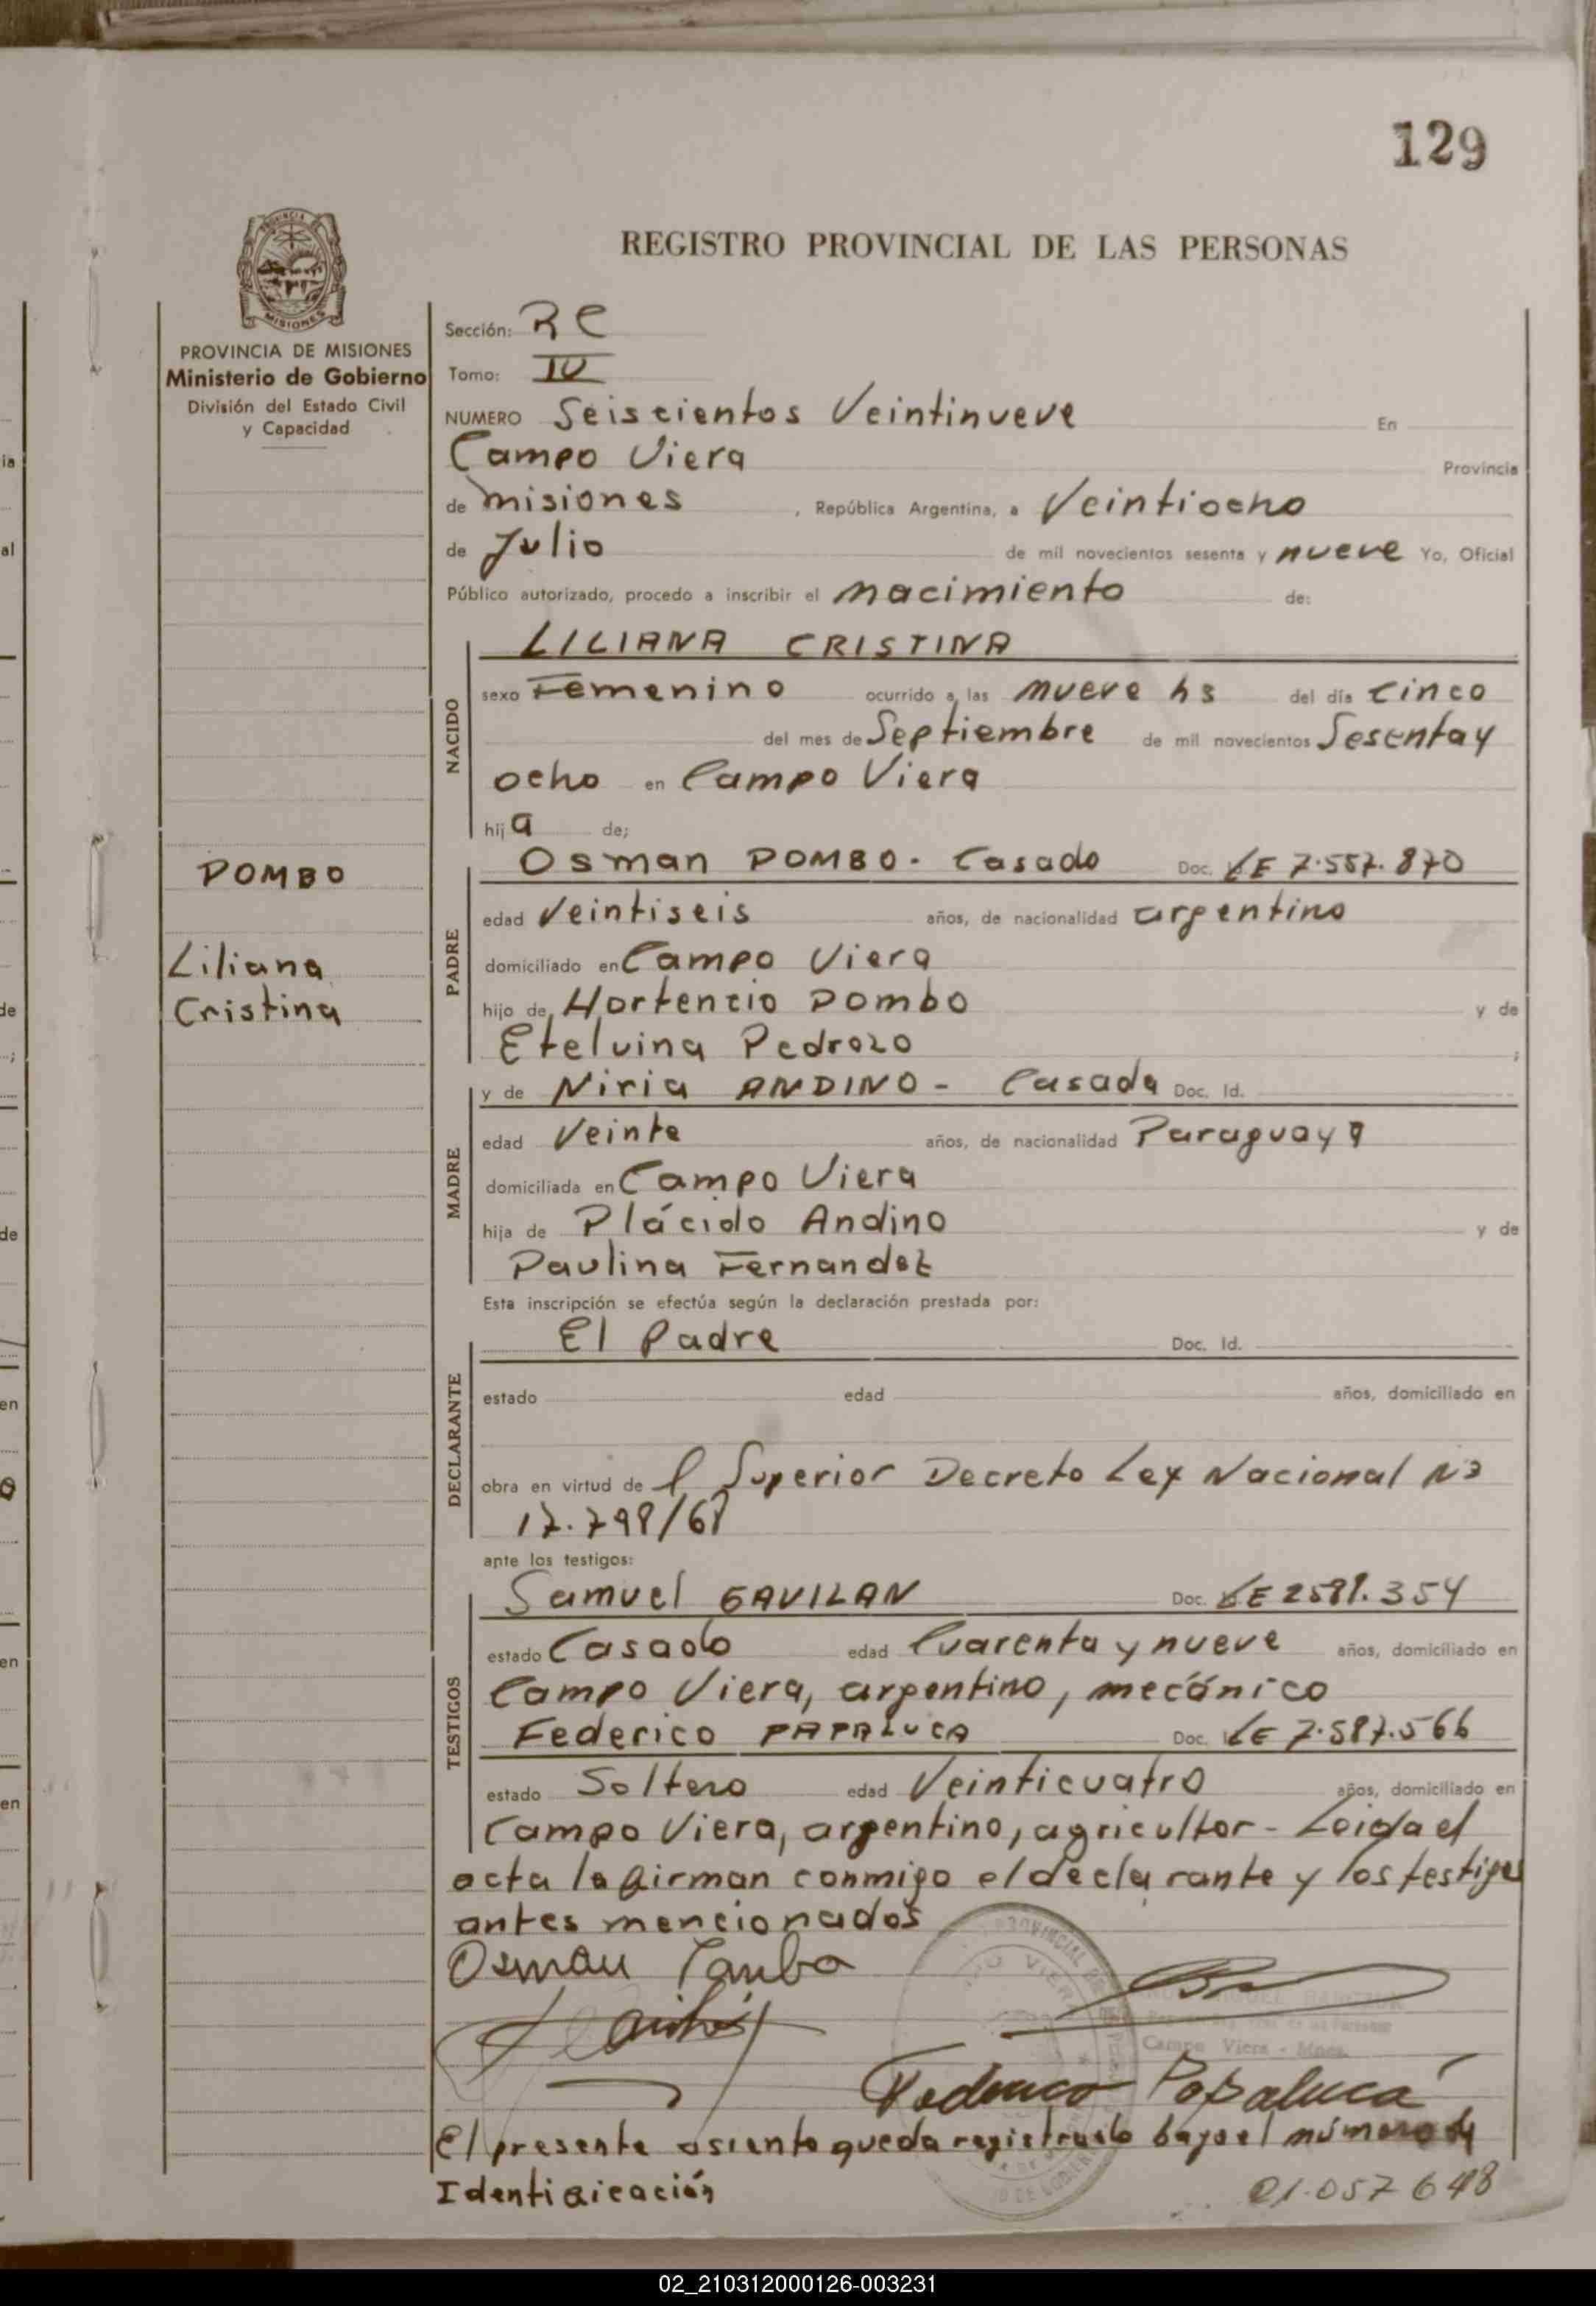 129
REGISTRO PROVINCIAL DE LAS PERSONAS
MISIONES
PROVINCIA DE MISIONES
Ministerio de Gobierno
División del Estado Civil
y Capacidad
POMBO
Liliana
Cristina
Sección: RC
Tomo: IV
NUMERO Seiscientos Veintinueve En
Campo Viera Provincia
de misiones, República Argentina, a Veintiocho
de Julio de mil novecientos sesenta y nueve Yo, Oficial
Público autorizado, procedo a inscribir el nacimiento de:
NACIDO
LILIANA CRISTINA
sexo Femenino ocurrido a las nueve hs del día cinco
del mes de Septiembre de mil novecientos Sesenta y
ocho en Campo Viera
hija de;
PADRE
Osman POMBO - Casado Doc. LE 7.557.870
edad Veintiseis años, de nacionalidad argentino
domiciliado en Campo Viera
hijo de Hortencio Pombo y de
Etelvina Pedrozo ;
MADRE
y de Niria ANDINO - Casada Doc. Id.
edad Veinte años, de nacionalidad Paraguaya
domiciliada en Campo Viera
hija de Plácido Andino y de
Paulina Fernandez
Esta inscripción se efectúa según la declaración prestada por:
DECLARANTE
El Padre Doc. Id.
estado edad años, domiciliado en
obra en virtud de l Superior Decreto Ley Nacional Nº
17.798/68
ante los testigos:
TESTIGOS
Samuel GAVILAN Doc. LE 2581.354
estado Casado edad Cuarenta y nueve años, domiciliado en
Campo Viera, argentino, mecánico
Federico PAPALUCA Doc. LE 7.587.566
estado Soltero edad Veinticuatro años, domiciliado en
Campo Viera, argentino, agricultor - Leida el
acta la firman conmigo el declarante y los testigos
antes mencionados
Osman Pombo
Campo Viera - Mnes.
Federico Papaluca
El presente asiento queda registrado bajo el número de
Identificación 01.057648
02_210312000126-003231